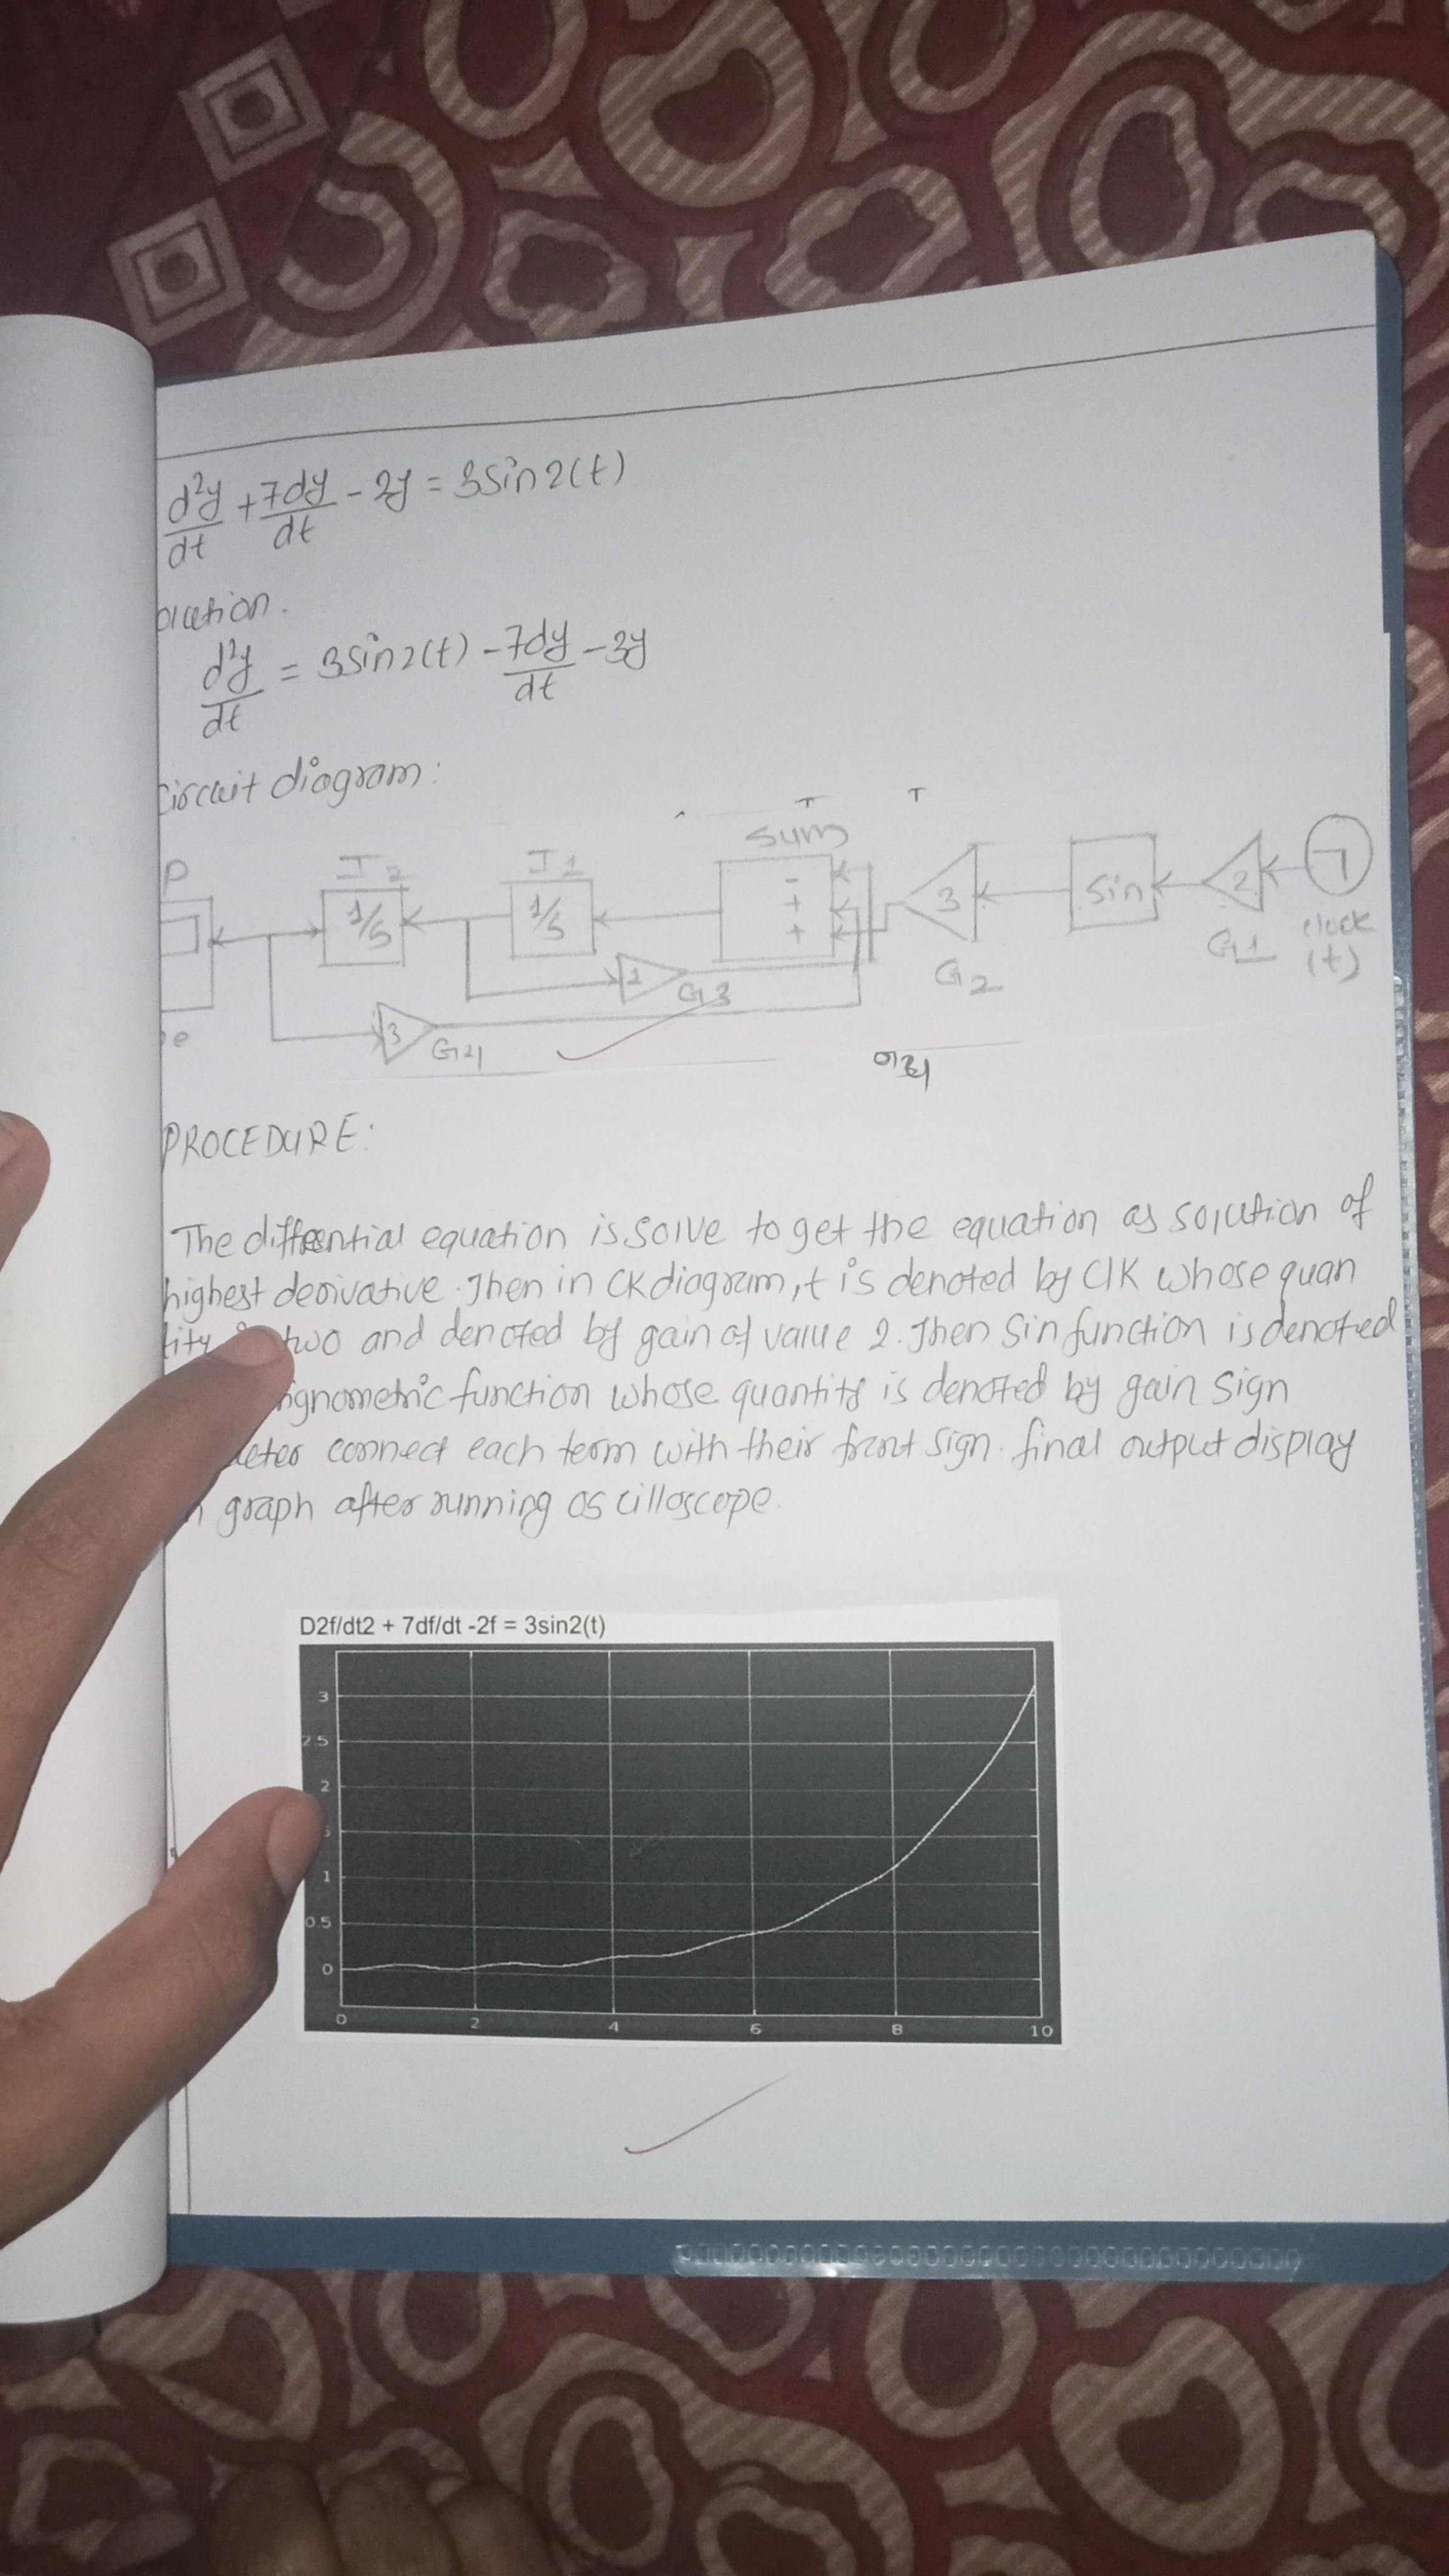 d²y/dt + 7dy/dt - 2y = 3sin2(t)
olution.
d²y/dt = 3sin2(t) - 7dy/dt - 3y
Circuit diagram:
P I2 I1 Sum
1/s 1/s - + + 3 sin 2
G2 G1 clock
(t)
1 G3
3 G4
e
PROCEDURE:
The diffrential equation is solve to get the equation as solution of
highest derivative. Then in CKdiagram, t is denoted by ClK whose quan
tity two and denoted by gain of value 2. Then Sin function is denoted
ignometric function whose quantity is denoted by gain sign
connect each term with their front sign. final output display
graph after running oscilloscope.
D2f/dt2 + 7df/dt -2f = 3sin2(t)
3
2.5
2
1
0.5
0
0 2 4 6 8 10